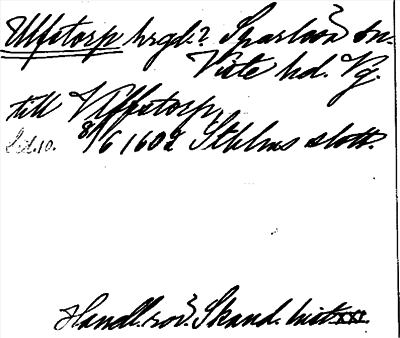 Ulfstorp hrgd? Sparlösa sn.
Viste hd. Vg.
till Ulffstorp,
Sd. 10. 8/6 1602 Sthlms slott.
Handl. rör. Skand. hist. XXX